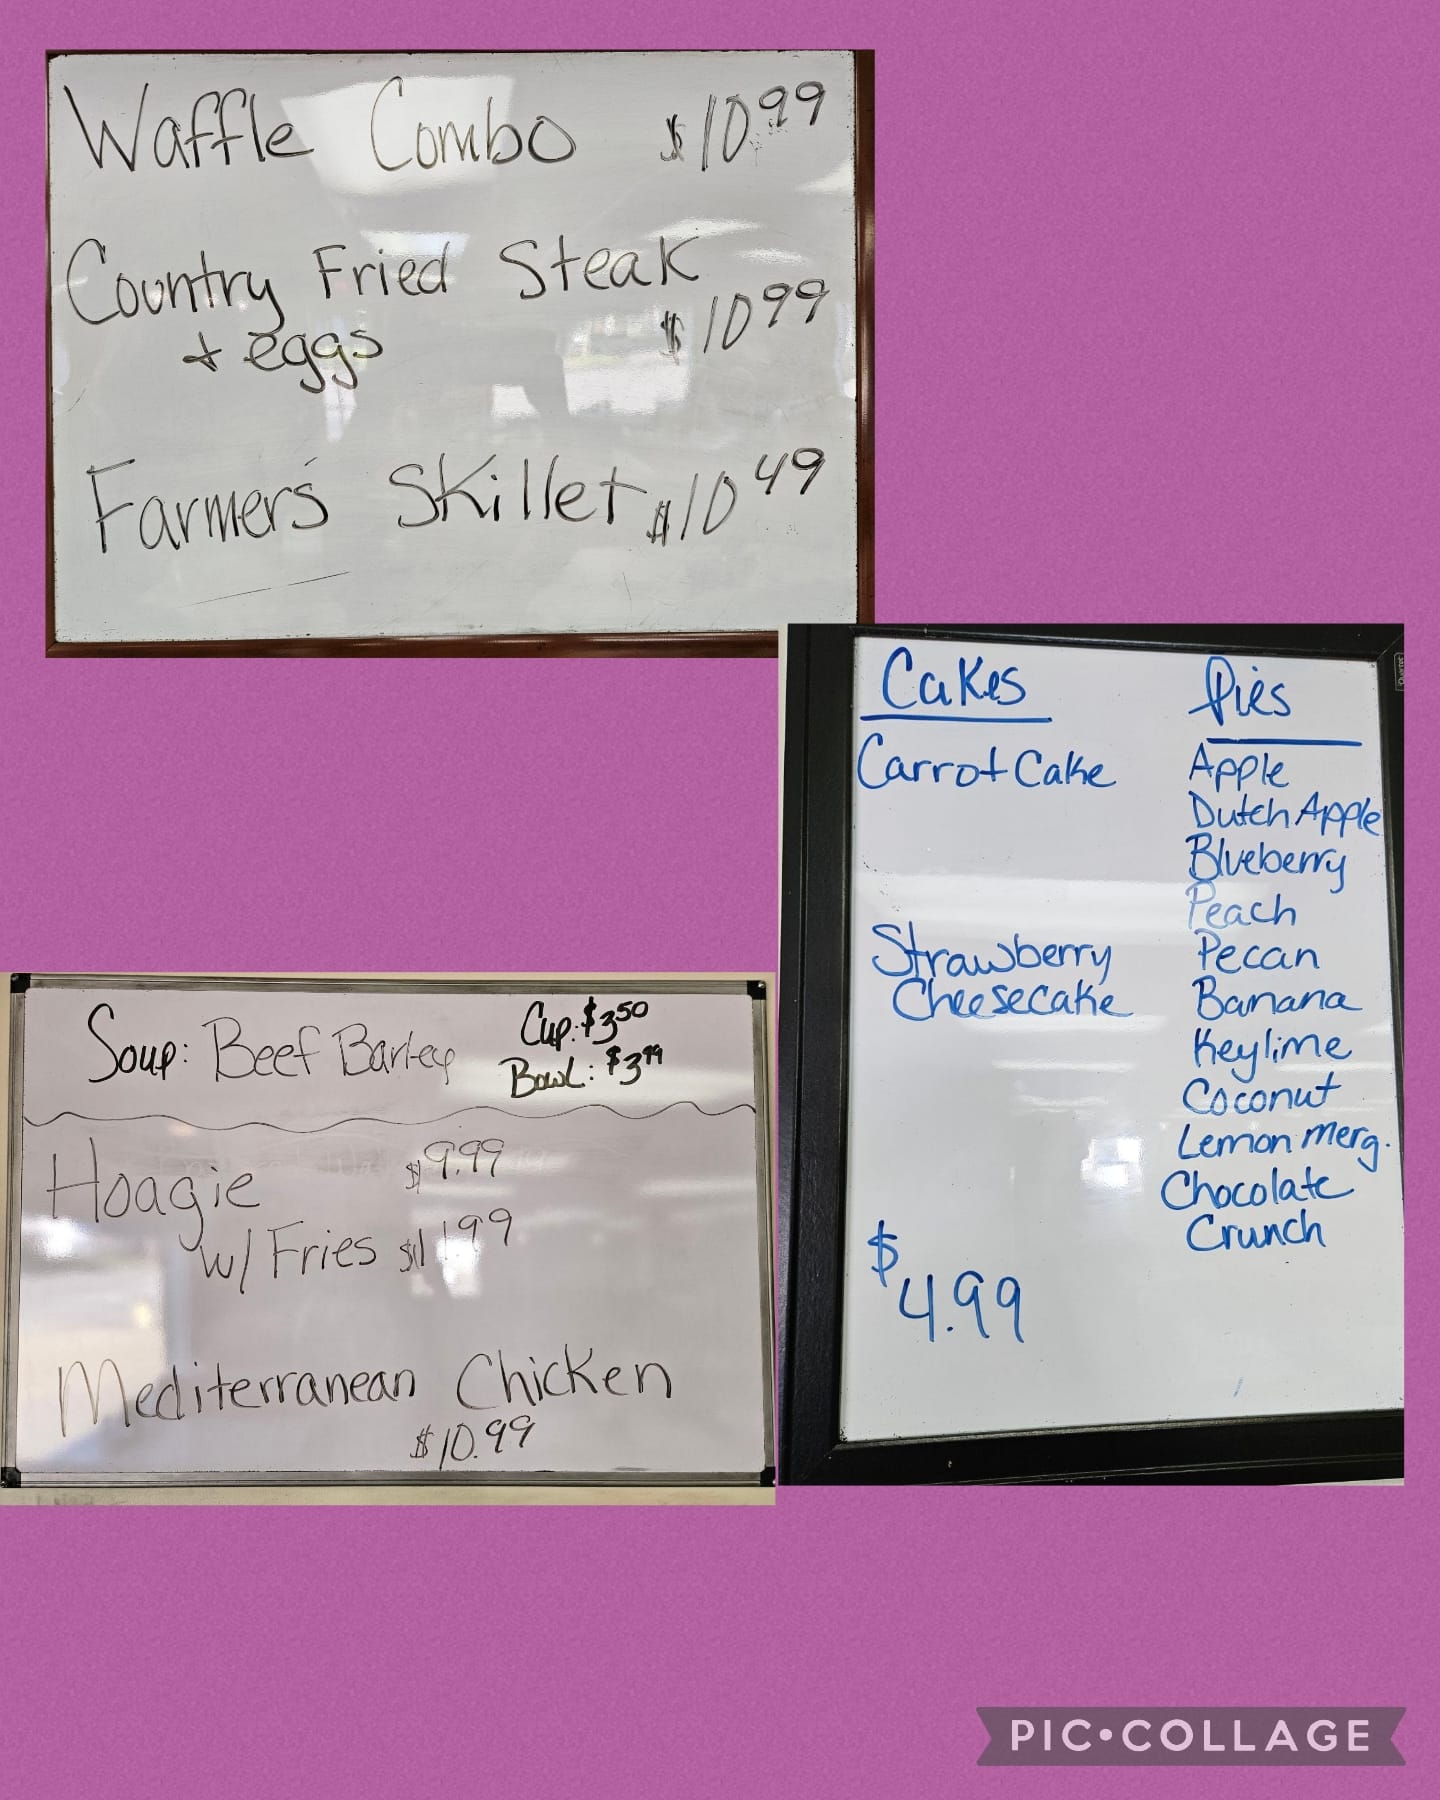 Waffle Combo $10.99
Country Fried Steak
+ eggs $10 99
Farmer's Skillet $10 49
Cakes
Carrot Cake
Strawberry
Cheesecake
$
4.99
Pies
Apple
Dutch Apple
Blueberry
Peach
Pecan
Banana
Keylime
Coconut
Lemon Merg.
Chocolate
Crunch
Soup: Beef Barley Cup: $3 50
Bowl: $3 99
Hoagie $9.99
w/ Fries $11 99
Mediterranean Chicken
$10.99
PIC•COLLAGE